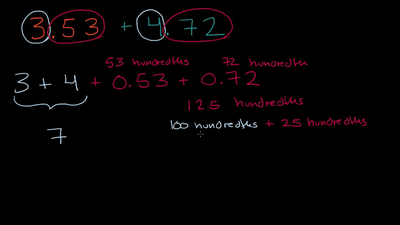 3.53 + 4.72
53 hundredths 72 hundredths
3 + 4 + 0.53 + 0.72
125 hundredths
100 hundredths + 25 hundredths
7